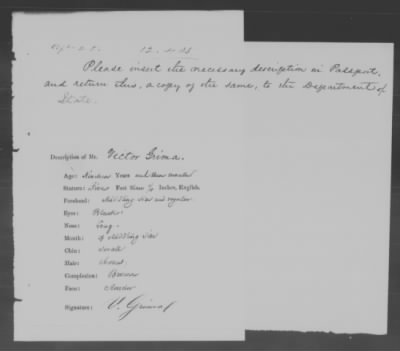 Please insert the necessary description in Passport,
and return this, a copy of the same, to the Department of
State.
Description of Mr. Victor Grima.
Age: Nineteen Years and three months
Stature: Five Feet Inches, English.
Forehead: Middling size and regular
Eyes: Black
Nose: Long
Mouth: of Middling size
Chin: Small
Hair:
Complexion: Brown
Face: Slender
Signature: V. Grima